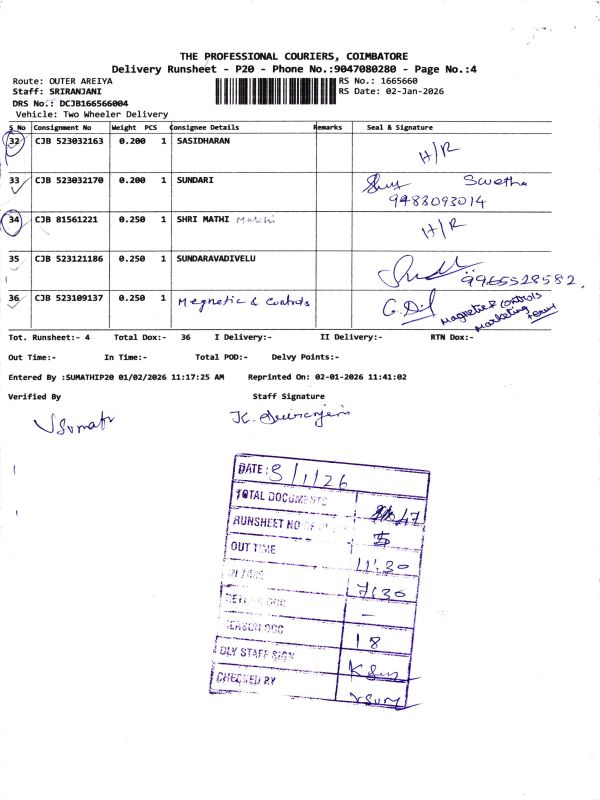 THE PROFESSIONAL COURIERS, COIMBATORE
Delivery Runsheet - P20 - Phone No.:9047080280 - Page No.:4
Route: OUTER AREIYA RS No.: 1665660
Staff: SRIRANJANI RS Date: 02-Jan-2026
DRS No.: DCJB166566004
Vehicle: Two Wheeler Delivery
S No Consignment No Weight PCS Consignee Details Remarks Seal & Signature
32 CJB 523032163 0.200 1 SASIDHARAN H/R
33 CJB 523032170 0.200 1 SUNDARI Swetha
9483093014
34 CJB 81561221 0.250 1 SHRI MATHI H/R
35 CJB 523121186 0.250 1 SUNDARAVADIVELU 9965528582.
36 CJB 523109137 0.250 1 Megnetic & Controls Magnetic & Controls
Marketing team
Tot. Runsheet:- 4 Total Dox:- 36 I Delivery:- II Delivery:- RTN Dox:-
Out Time:- In Time:- Total POD:- Delvy Points:-
Entered By :SUMATHIP20 01/02/2026 11:17:25 AM Reprinted On: 02-01-2026 11:41:02
Verified By Staff Signature
DATE: 3/1/26
TOTAL DOCUMENTS 47
RUNSHEET NO OF
OUT TIME 11:30
IN TIME 7:30
DOC -
REASON DOC 18
DLY STAFF SIGN
CHECKED BY